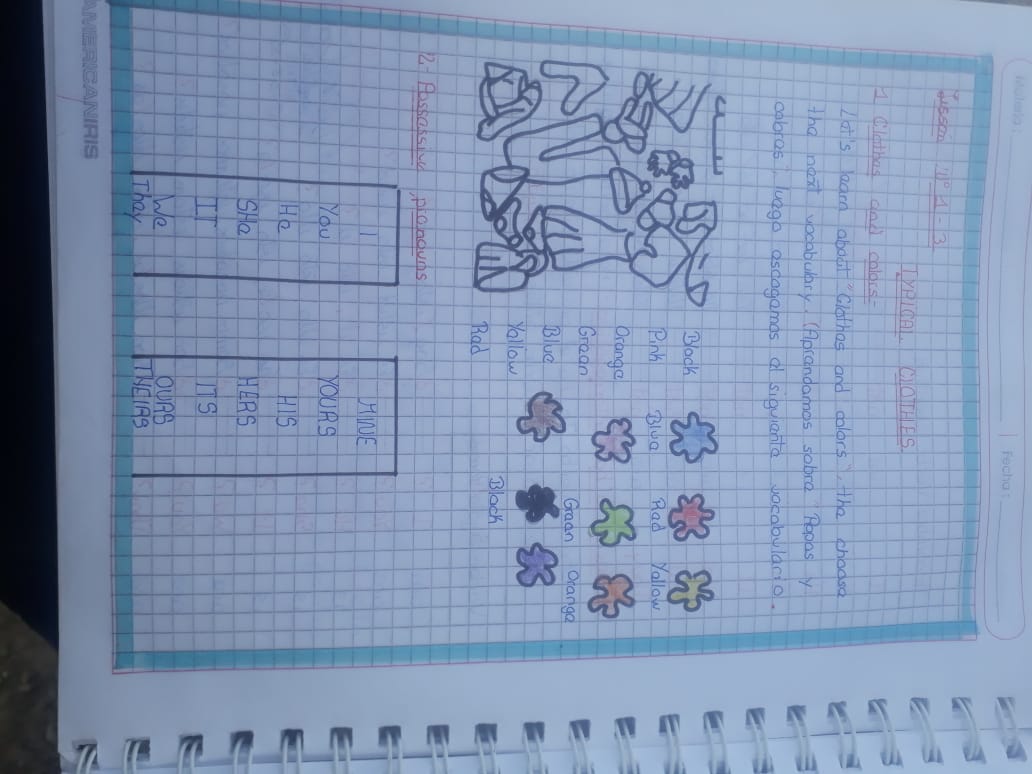 Nombre:
Fecha:
Lesson N° 1 - 3
TYPICAL CLOTHES
1 Clothes and colors:-
Let's learn about "Clothes and colors", the choose
the next vocabulary. (Aprendamos sobre "Ropas y
colores", luego escogemos el siguiente vocabulario.
Black
Pink
Orange
Green
Blue
Yellow
Red
Blue Red Yellow
Green Orange
Black
2- Possessive pronouns
I MINE
You YOURS
He HIS
SHe HERS
IT ITS
We OURS
They THEIRS
AMERICANIRIS